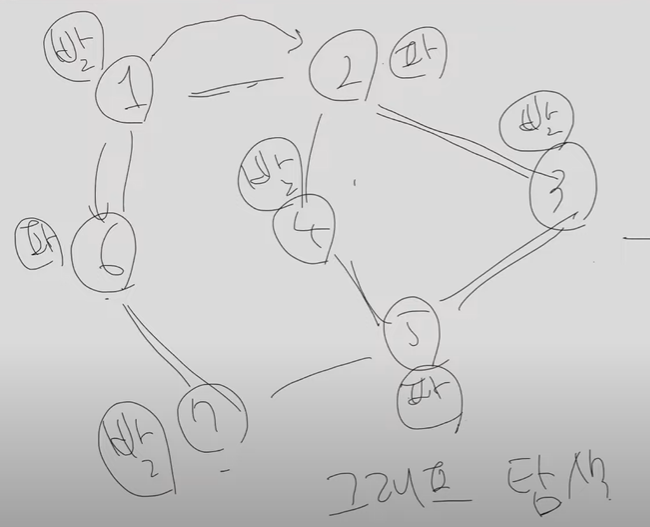 빨
1
2
파
빨
3
빨
4
파
6
5
파
빨
7
그래프 탐색